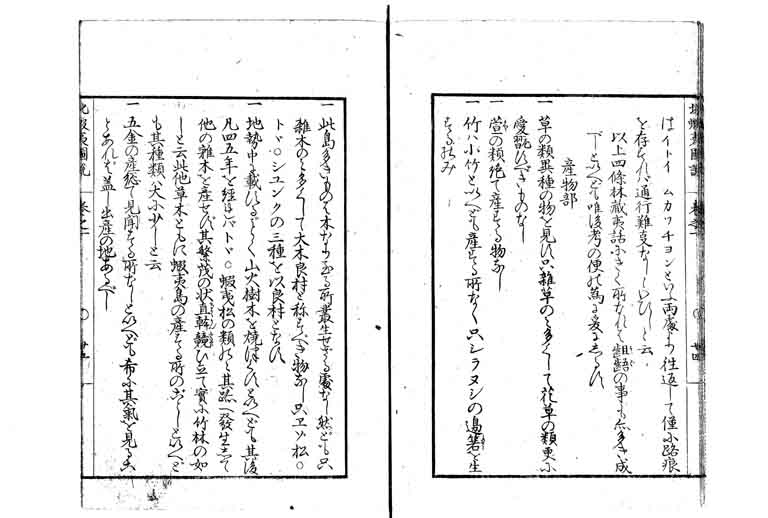 蝦夷圖說 廿四
はイトイ ムカワチヨンといふ両處より往返して僅小路痕
を存すれバ通行難支なしといひしと云
以上四條林蔵夷話にきく所なれバ齟齬の事も亦多き成
べしといへども唯後考の便の為に爰にしるしぬ
産物部
一 草の類異種の物を見ず只雑草のミ多くして花草の類更に
愛翫すべきものなし
一 萱の類絶て産する物なし
一 竹ハ小竹といへども産する所なく只シラヌシの邊箬を生
するのミ
一 此島多きものハ木なり至る所叢生せざる處なし然ども只
雑木のミ多くして大木良材と称すべき物なし只ヱゾ松〇
トヾ〇シユンクの三種を以良材となせり
一 地勢中に載けるごとく山火樹木を焼ほろぼすといへども其後
凡四五年を経ればトヾ〇蝦夷松の類のミ其跡へ発生して
他の雑木を産せず其繁茂の状直幹競ひ立て實に竹林の如
しと云此他草木ともに蝦夷島の産する所のごとしといへど
も其種類ハ大に少しと云
一 五金の産惣て見聞する所なしといへども希に其氣を見るこ
とあれば蓋し出産の地あるべし
北蝦夷圖說 巻之一 〇 廿五